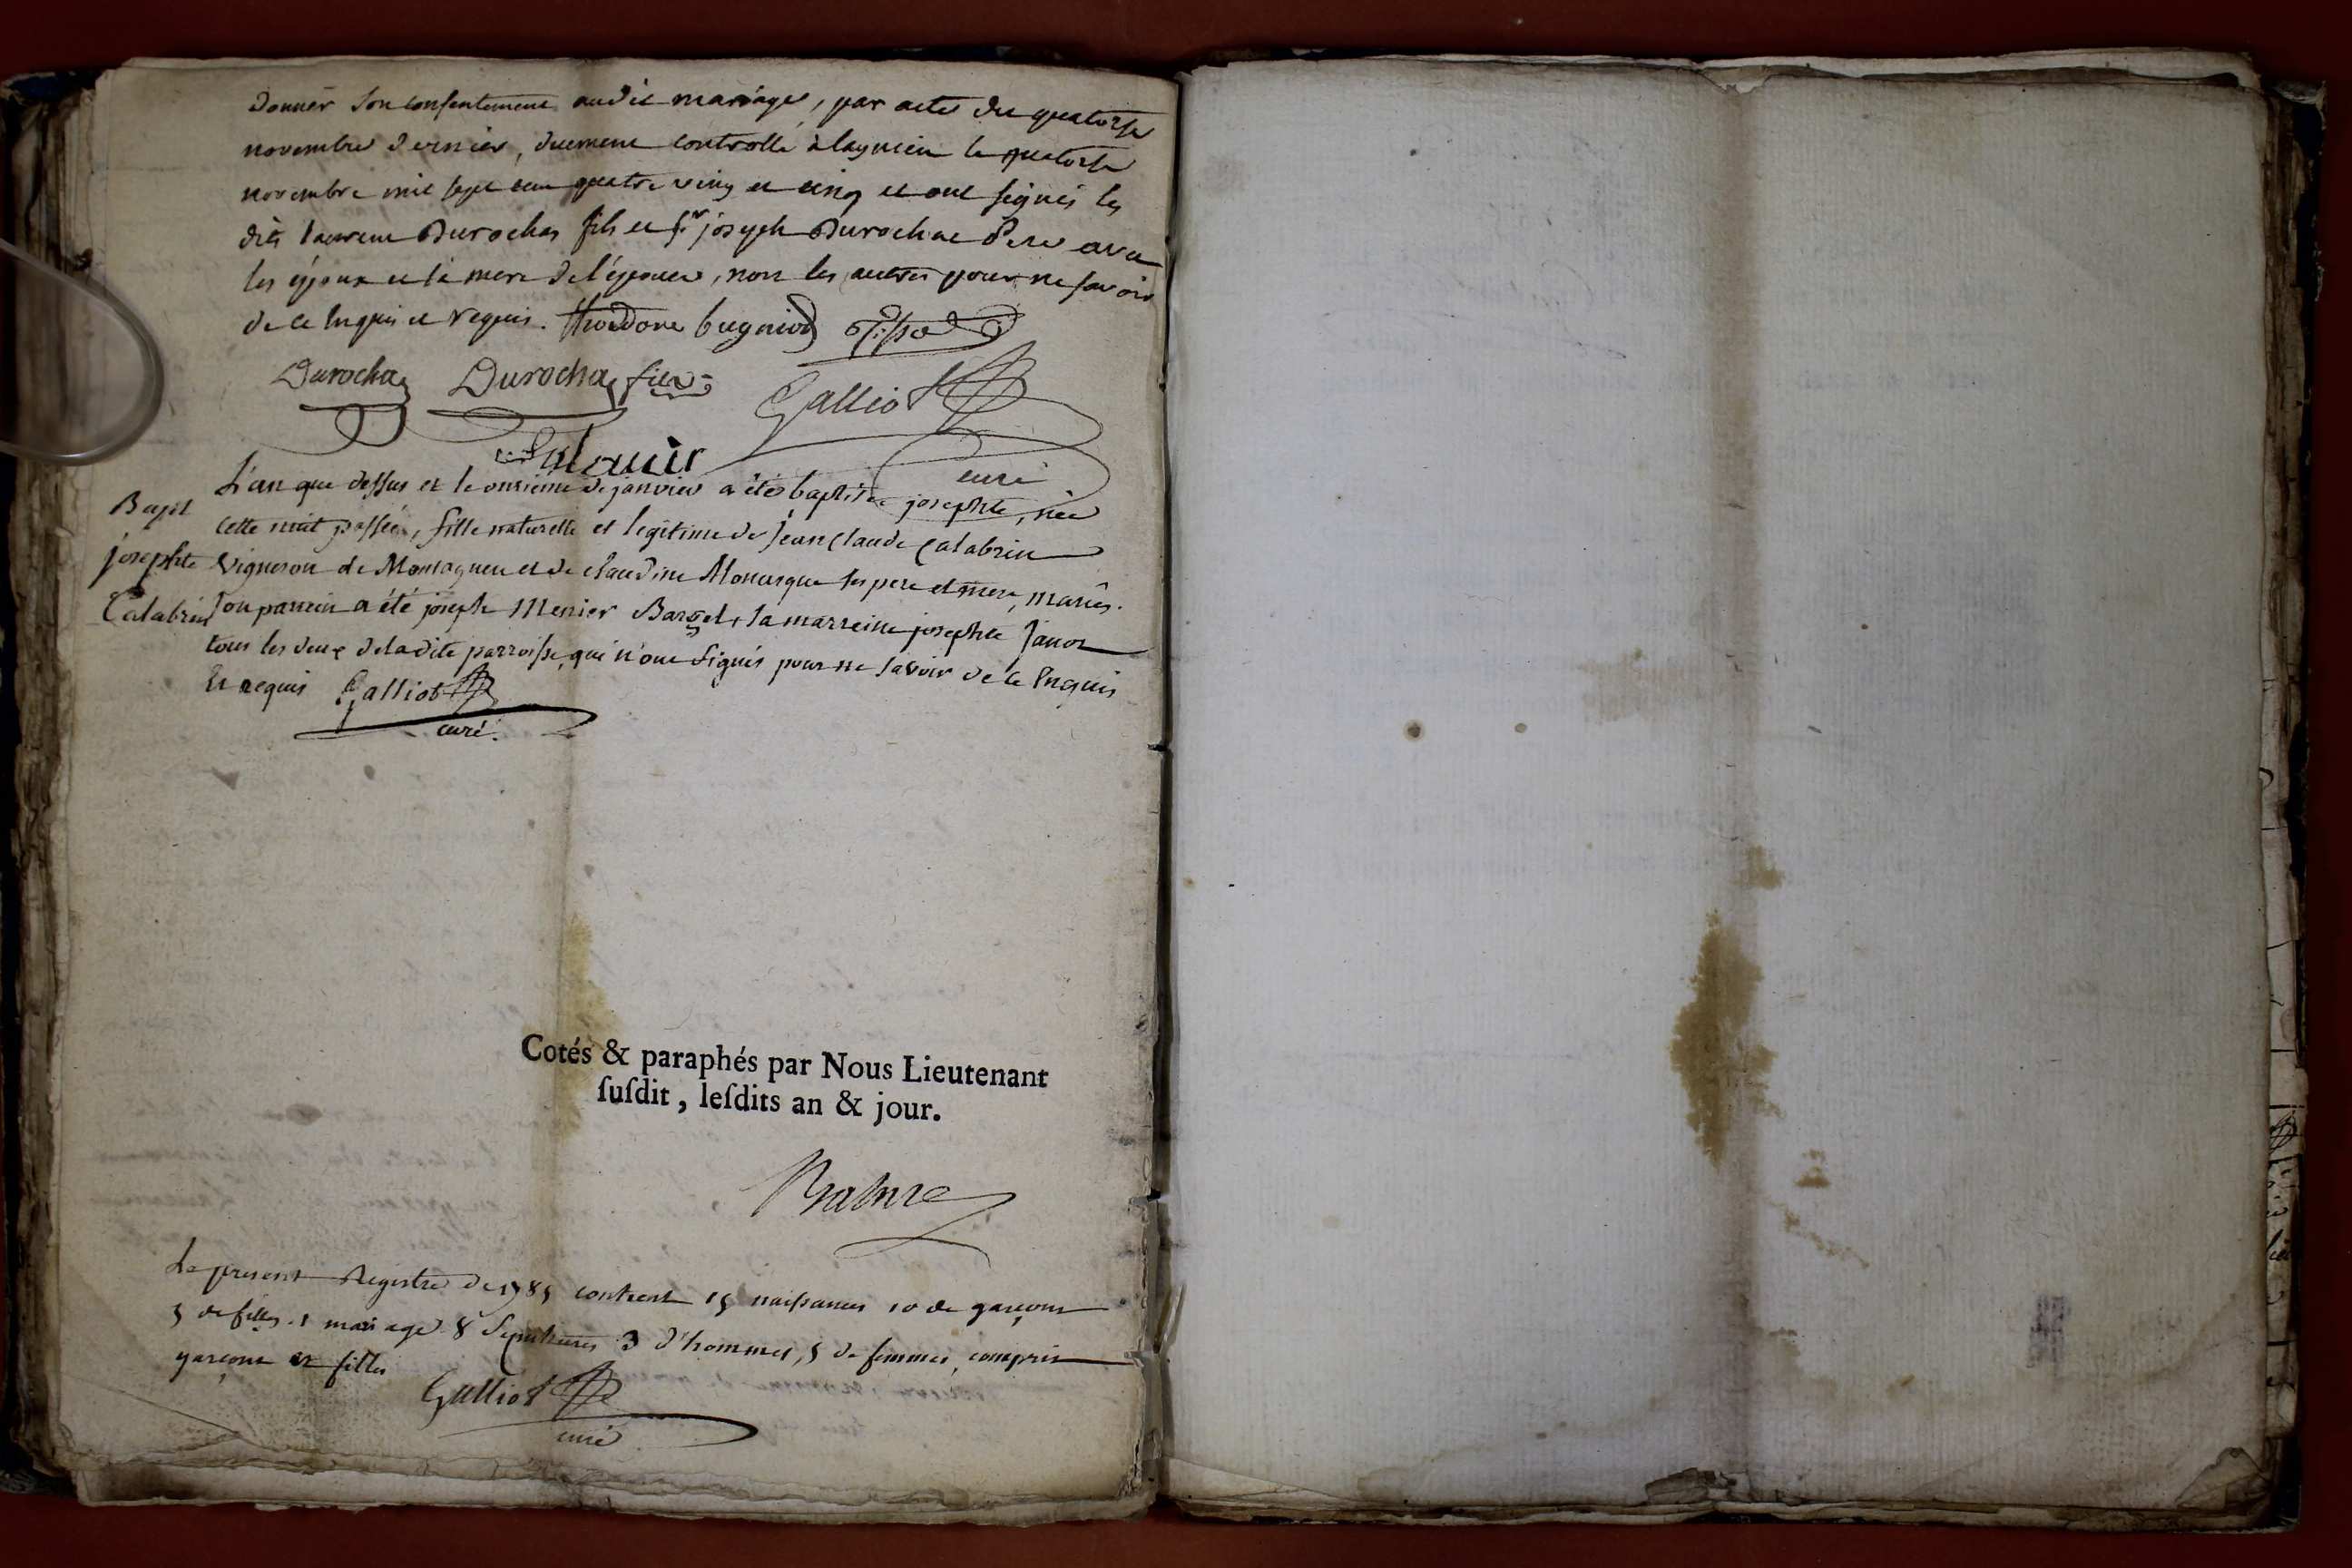 donner son consentement audit mariage, par acte du quatorse
novembre dernier, duement controllé à lagnieu le quatorse
novembre mil sept cen quatre ving et cinq et ont signés les
dits laurent Durochas fils et sr joseph Durochat Pere avec
les époux et la mere de l'épouse, non les autres pour ne savoir
de ce Enquis et requis. Theodore bugniod
Durochat Durochat fils Galliot
curé
L'an que dessus et le onsieme de janvier a été baptisée josephte, née
Bapt
cette nuit passée, fille naturelle et legitime de Jean Claude Calabrin
josephte vigneron de Montagneu et de claudine Monarque ses pere et mere, mariés.
Calabrin son parrein a été joseph Menier Barget, la marreine josephte Janot
tous les deux de ladite parroisse, qui n'ont signés pour ne savoir de ce Enquis
Et requis Galliot
curé.
Cotés & paraphés par Nous Lieutenant
ſuſdit, leſdits an & jour.
Le present Registre de 1785 contient 15 naissances 10 de garçons
5 de filles. 1 mariage 8 Sepultures 3 d'hommes, 5 de femmes, compris
garçons et filles
Galliot
curé